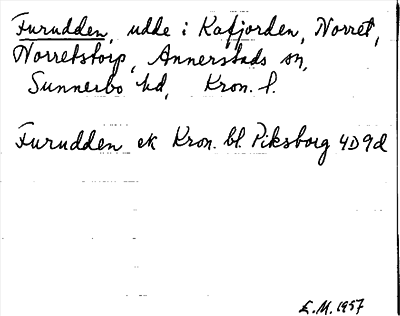 Furudden, udde i Kafjorden, Norret,
Norretstorp, Annerstads sn,
Sunnerbo hd, Kron. l.
Furudden ek Kron. bl. Piksborg 4D9d
E.M. 1957